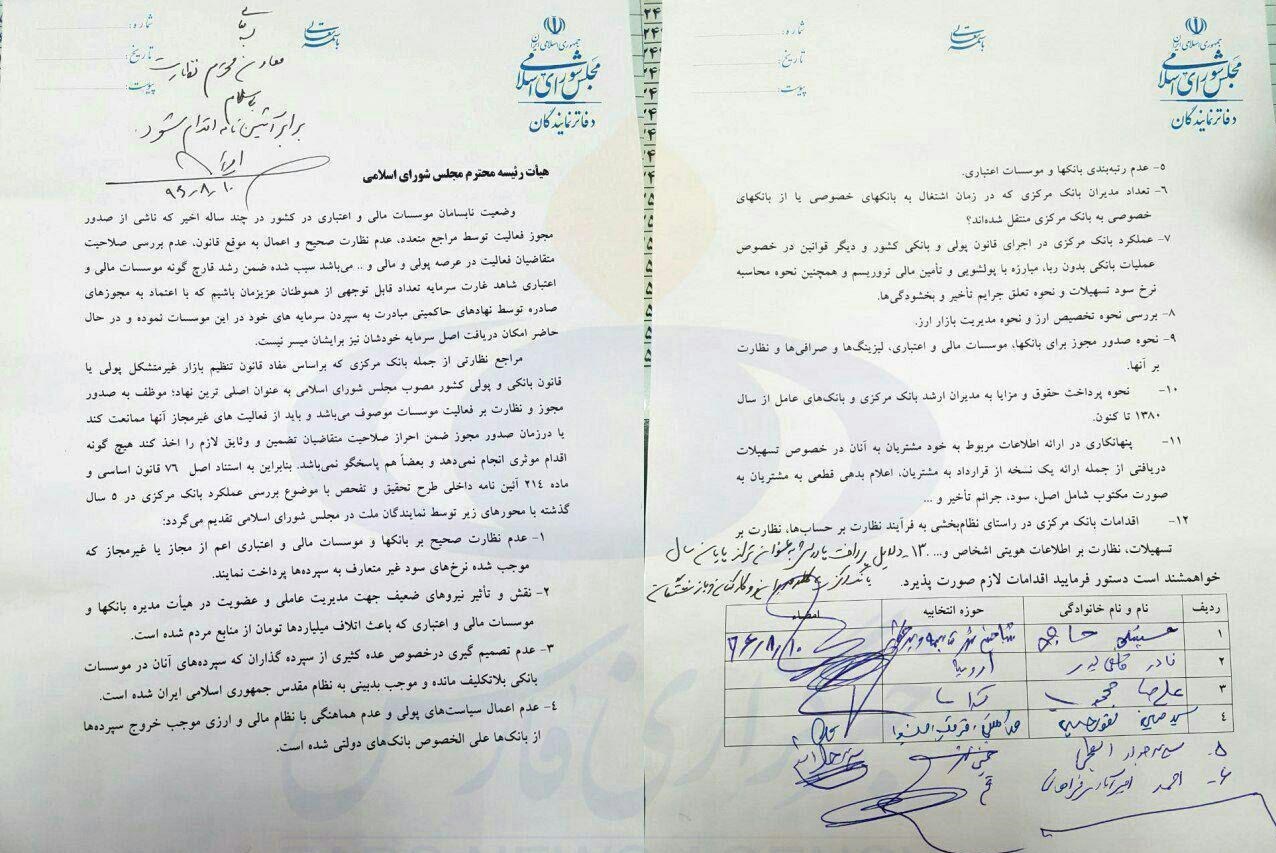 باسمه تعالی
جمهوری اسلامی ایران
مجلس شورای اسلامی
دفاتر نمایندگان
شماره:
تاریخ:
پیوست:
معاون محترم نظارت
با سلام
برابر آئین نامه اقدام شود.
۹۶/۸/۱۰
هیأت رئیسه محترم مجلس شورای اسلامی
وضعیت نابسامان موسسات مالی و اعتباری در کشور در چند ساله اخیر که ناشی از صدور
مجوز فعالیت توسط مراجع متعدد، عدم نظارت صحیح و اعمال به موقع قانون، عدم بررسی صلاحیت
متقاضیان فعالیت در عرصه پولی و مالی و .. می‌باشد سبب شده ضمن رشد قارچ گونه موسسات مالی و
اعتباری شاهد غارت سرمایه تعداد قابل توجهی از هموطنان عزیزمان باشیم که با اعتماد به مجوزهای
صادره توسط نهادهای حاکمیتی مبادرت به سپردن سرمایه های خود در این موسسات نموده و در حال
حاضر امکان دریافت اصل سرمایه خودشان نیز برایشان میسر نیست.
مراجع نظارتی از جمله بانک مرکزی که براساس مفاد قانون تنظیم بازار غیرمتشکل پولی یا
قانون بانکی و پولی کشور مصوب مجلس شورای اسلامی به عنوان اصلی ترین نهاد؛ موظف به صدور
مجوز و نظارت بر فعالیت موسسات موصوف می‌باشد و باید از فعالیت های غیرمجاز آنها ممانعت کند
یا درزمان صدور مجوز ضمن احراز صلاحیت متقاضیان تضمین و وثایق لازم را اخذ کند هیچ گونه
اقدام موثری انجام نمی‌دهد و بعضاً هم پاسخگو نمی‌باشد. بنابراین به استناد اصل ۷۶ قانون اساسی و
ماده ۲۱٤ آئین نامه داخلی طرح تحقیق و تفحص با موضوع بررسی عملکرد بانک مرکزی در ٥ سال
گذشته با محورهای زیر توسط نمایندگان ملت در مجلس شورای اسلامی تقدیم می‌گردد:
۱- عدم نظارت صحیح بر بانکها و موسسات مالی و اعتباری اعم از مجاز یا غیرمجاز که
موجب شده نرخ‌های سود غیر متعارف به سپرده‌ها پرداخت نمایند.
۲- نقش و تأثیر نیروهای ضعیف جهت مدیریت عاملی و عضویت در هیأت مدیره بانکها و
موسسات مالی و اعتباری که باعث اتلاف میلیاردها تومان از منابع مردم شده است.
۳- عدم تصمیم گیری درخصوص عده کثیری از سپرده گذاران که سپرده‌های آنان در موسسات
بانکی بلاتکلیف مانده و موجب بدبینی به نظام مقدس جمهوری اسلامی ایران شده است.
٤- عدم اعمال سیاست‌های پولی و عدم هماهنگی با نظام مالی و ارزی موجب خروج سپرده‌ها
از بانک‌ها علی الخصوص بانک‌های دولتی شده است.
باسمه تعالی
جمهوری اسلامی ایران
مجلس شورای اسلامی
دفاتر نمایندگان
شماره:
تاریخ:
پیوست:
٥- عدم رتبه‌بندی بانکها و موسسات اعتباری.
٦- تعداد مدیران بانک مرکزی که در زمان اشتغال به بانکهای خصوصی یا از بانکهای
خصوصی به بانک مرکزی منتقل شده‌اند؟
۷- عملکرد بانک مرکزی در اجرای قانون پولی و بانکی کشور و دیگر قوانین در خصوص
عملیات بانکی بدون ربا، مبارزه با پولشویی و تأمین مالی تروریسم و همچنین نحوه محاسبه
نرخ سود تسهیلات و نحوه تعلق جرایم تأخیر و بخشودگی‌ها.
۸- بررسی نحوه تخصیص ارز و نحوه مدیریت بازار ارز.
۹- نحوه صدور مجوز برای بانکها، موسسات مالی و اعتباری، لیزینگ‌ها و صرافی‌ها و نظارت
بر آنها.
۱۰- نحوه پرداخت حقوق و مزایا به مدیران ارشد بانک مرکزی و بانک‌های عامل از سال
۱۳۸۰ تا کنون.
۱۱- پنهانکاری در ارائه اطلاعات مربوط به خود مشتریان به آنان در خصوص تسهیلات
دریافتی از جمله ارائه یک نسخه از قرارداد به مشتریان، اعلام بدهی قطعی به مشتریان به
صورت مکتوب شامل اصل، سود، جرائم تأخیر و ...
۱۲- اقدامات بانک مرکزی در راستای نظام‌بخشی به فرآیند نظارت بر حساب‌ها، نظارت بر
تسهیلات، نظارت بر اطلاعات هویتی اشخاص و... ۱۳- دلایل پرداخت پاداش به عنوان تراز پایان سال
بانک مرکزی و کارکنان و بازنشستگان
خواهشمند است دستور فرمایید اقدامات لازم صورت پذیرد.
ردیف نام و نام خانوادگی حوزه انتخابیه امضاء
۱ حسینعلی حاجی شاهین شهر ۹۶/۸/۱۰
۲ نادر قاضی پور ارومیه
۳ علیرضا
٤ سید حسین نقوی حسینی
۵- سید جواد ابطحی خمینی شهر
۶- احمد امیرآبادی فراهانی قم